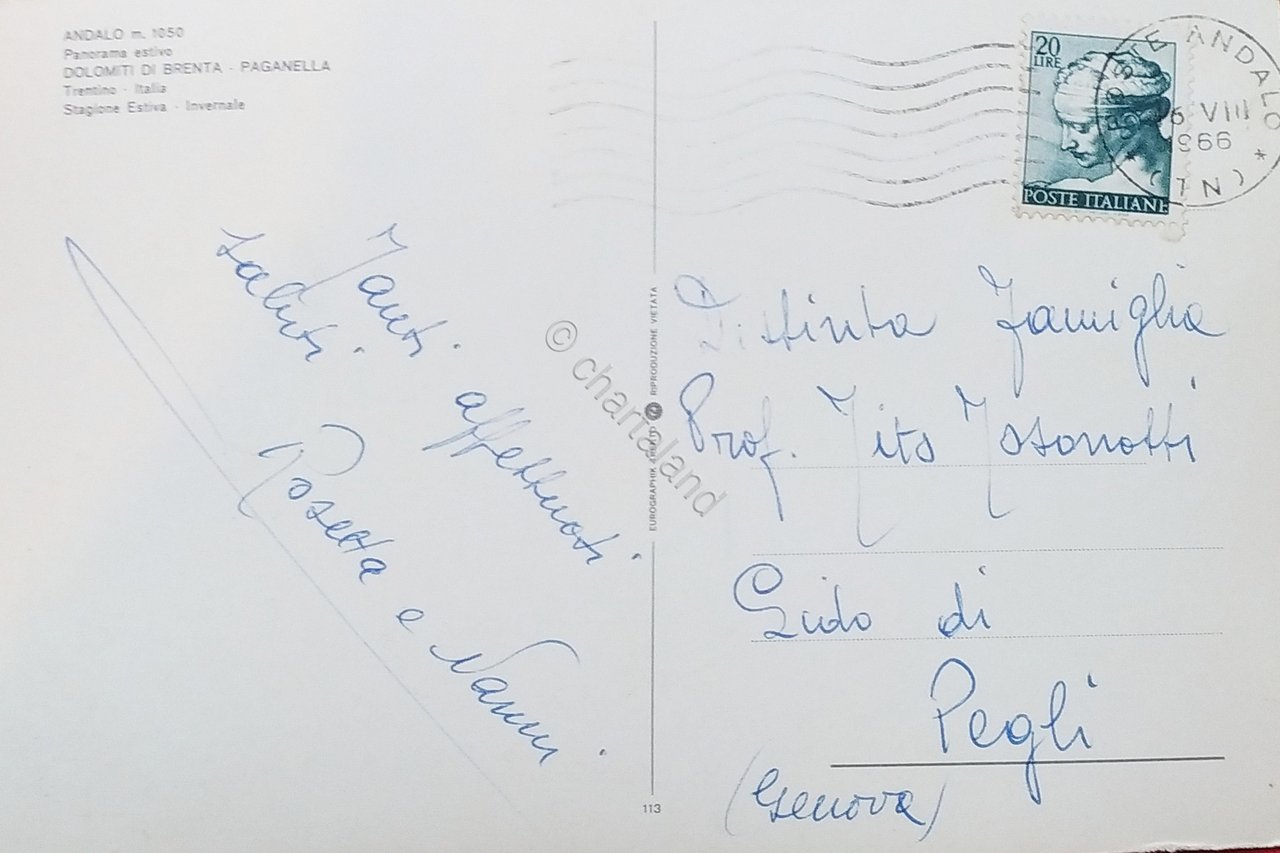 ANDALO m. 1050
Panorama estivo
DOLOMITI DI BRENTA - PAGANELLA
Trentino - Italia
Stagione Estiva - Invernale
20
LIRE
POSTE ITALIANE
POSTE ANDALO
VIII
1966
* (TN) *
Tanti affettuosi
saluti
Rosetta e Nanni
© chartaland
RIPRODUZIONE VIETATA
113
Distinta Famiglia
Prof. Tito
Lido di
Pegli
(Genova)